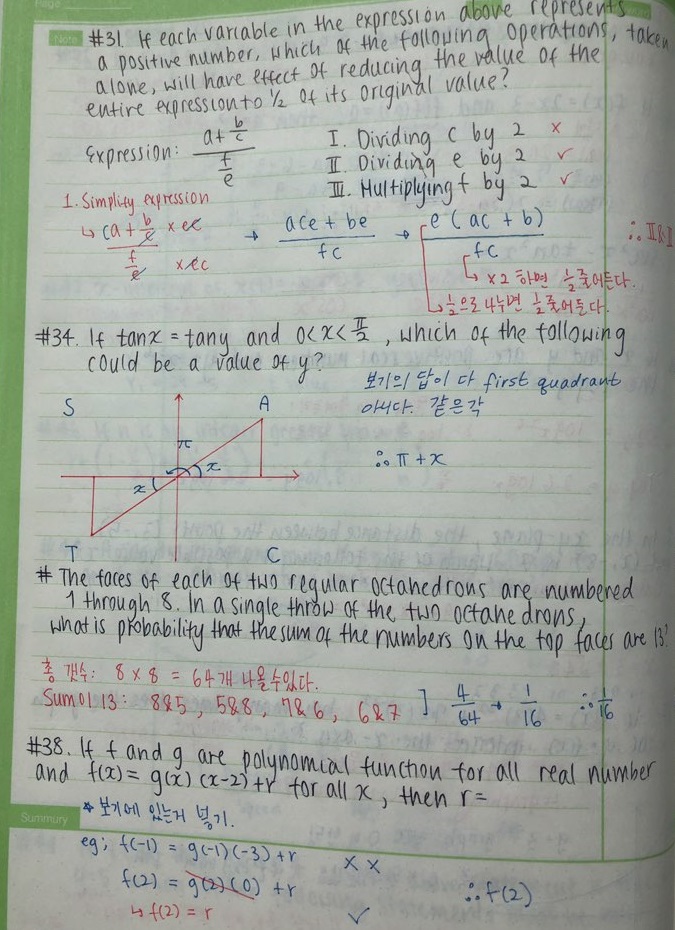 Page
Note
#31. If each variable in the expression above represents
a positive number, which of the following operations, taken
alone, will have effect of reducing the value of the
entire expression to ½ of its original value?
Expression: (a + b/c) / (f/e)
I. Dividing c by 2 ×
II. Dividing e by 2 ✓
III. Multiplying f by 2 ✓
1. Simplify expression
↳ (ca + b/c × ec) / (f/e × ec) → (ace + be) / fc → e(ac + b) / fc ∴ II & II
↳ ×2 하면 ½ 줄어든다.
↳ ½으로 나누면 ½ 줄어든다.
#34. If tanx = tany and 0<x<π/2, which of the following
could be a value of y?
보기의 답이 다 first quadrant
아니다. 같은각
∴ π + x
S
A
π
x
x
T
C
# The faces of each of two regular octahedrons are numbered
1 through 8. In a single throw of the two octahedrons,
what is probability that the sum of the numbers on the top faces are 13?
총 갯수: 8 × 8 = 64개 나올수있다.
Sum이 13: 8&5, 5&8, 7&6, 6&7 ] 4/64 → 1/16 ∴ 1/16
#38. If f and g are polynomial function for all real number
and f(x) = g(x)(x-2)+r for all x, then r=
Summury
* 보기에 있는거 넣기.
eg; f(-1) = g(-1)(-3) + r ××
f(2) = g(2)(0) + r
↳ f(2) = r ✓
∴ f(2)